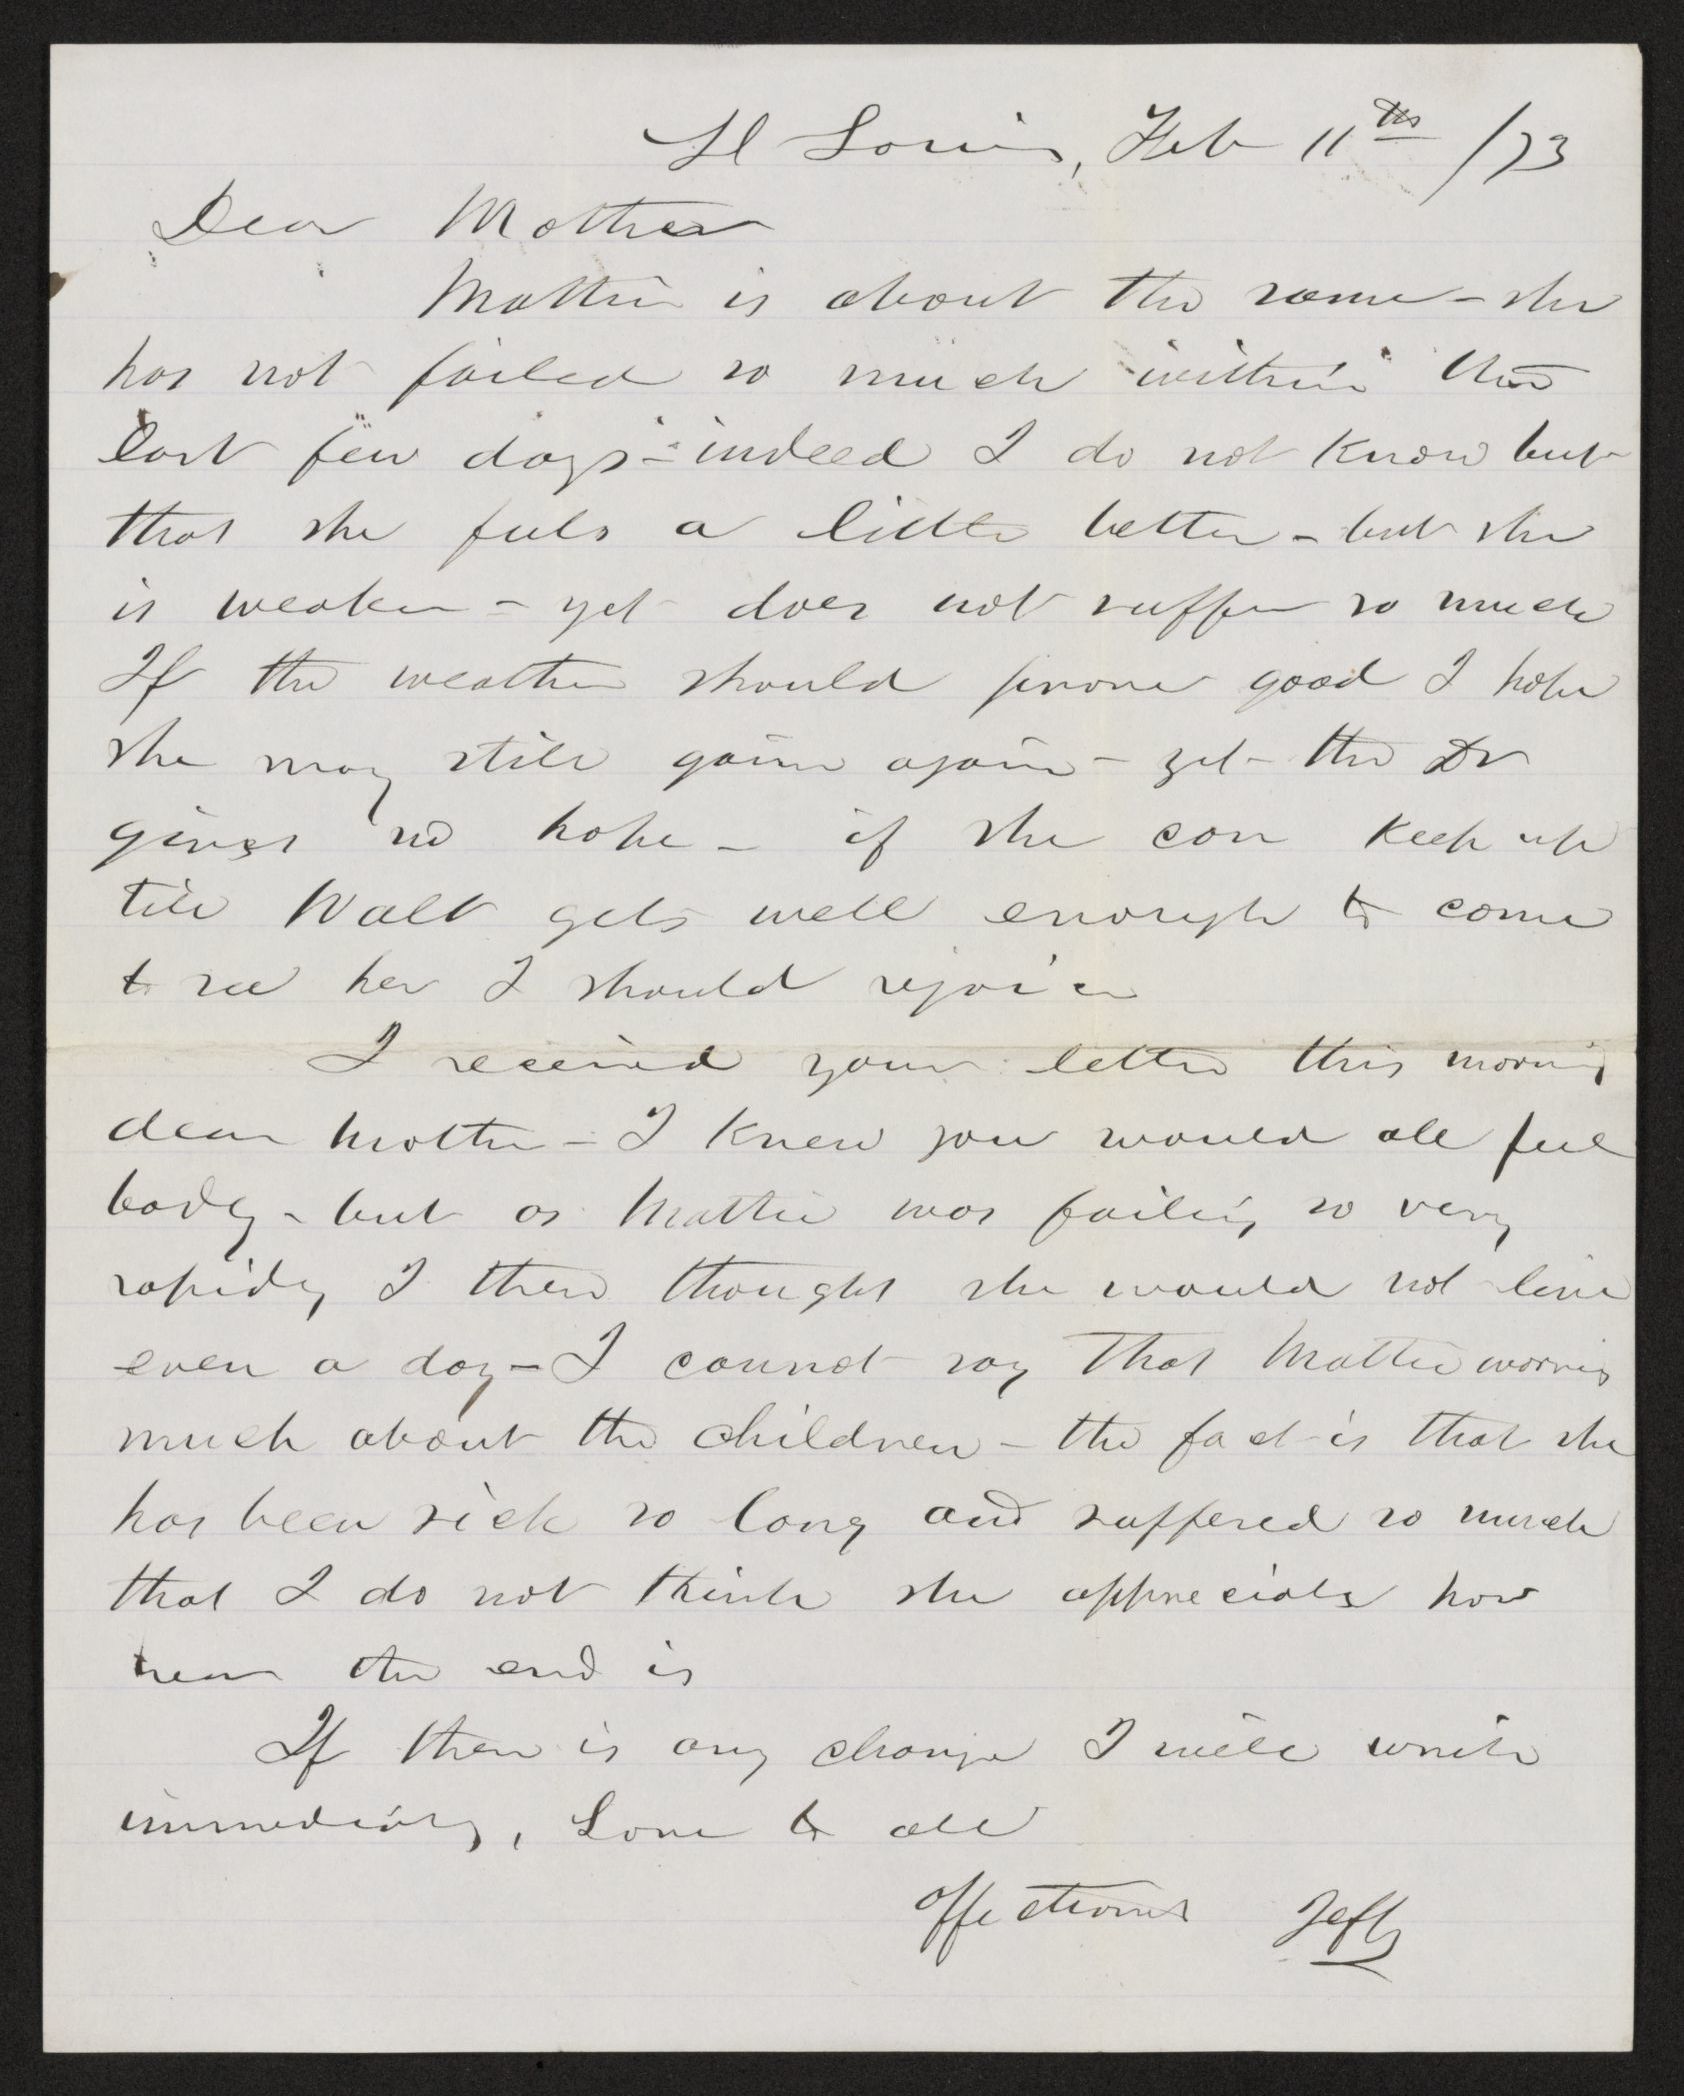 St Louis, Feb 11th /73
Dear Mother
Mattie is about the same – she
has not failed so much within the
last few days – indeed I do not know but
that she feels a little better – but she
is weaker – yet does not suffer so much
If the weather should prove good I hope
she may still gain again – yet the Dr
gives no hope – if she can keep up
till Walt gets well enough to come
to see her I should rejoice
I received your letter this morning
dear Mother – I knew you would all feel
badly – but as Mattie was failing so very
rapidly I then thought she would not live
even a day – I cannot say that Mattie worries
much about the children – the fact is that she
has been sick so long and suffered so much
that I do not think she appreciates how
near the end is
If there is any change I will write
immediately, Love to all
affectionately Jeff